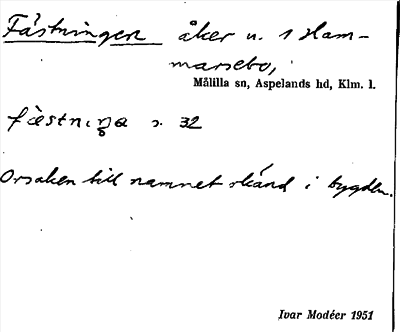 Fästningen åker u. 1 Ham-
marsebo,
Målilla sn, Aspelands hd, Klm. l.
fæ̀stnıŋa s. 32
Orsaken till namnet okänd i bygden.
Ivar Modéer 1951